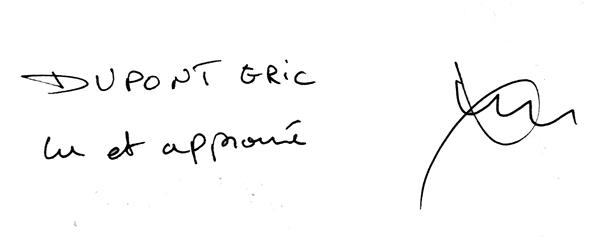 DUPONT ERIC
lu et approuvé